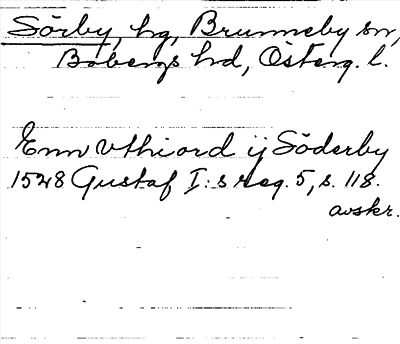 Sörby, hg, Brunneby sn,
Bobergs hd, Österg. l.
Enn vthiord ij Söderby
1528 Gustaf I:s reg. 5, s. 118.
avskr.